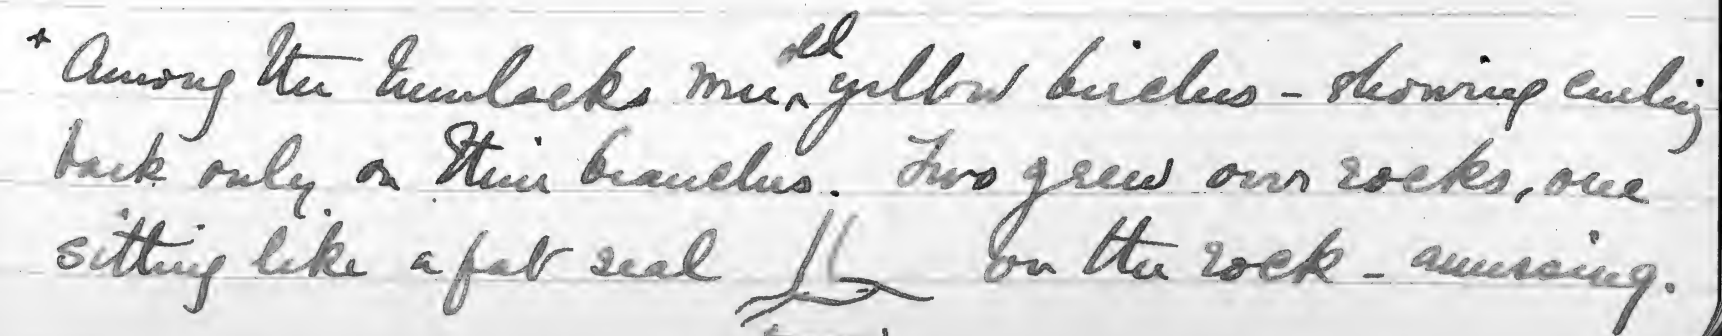 + Among the hemlocks were old yellow birches - showing curling
bark only on their branches. Two grew over rocks, one
sitting like a fat seal on the rock - amusing.